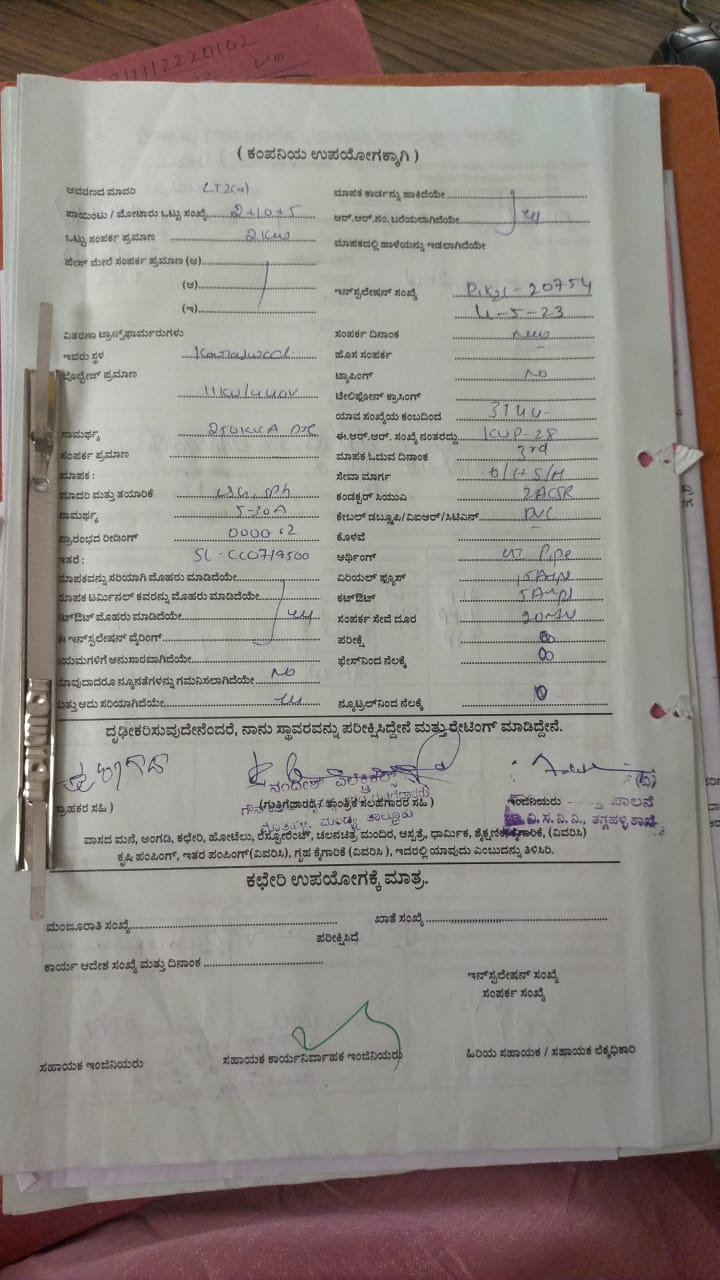 11112220102
( ಕಂಪನಿಯ ಉಪಯೋಗಕ್ಕಾಗಿ )
ಆವರಣದ ಮಾದರಿ LT2(a)
ಪಾಯಿಂಟು / ಮೋಟಾರು ಒಟ್ಟು ಸಂಖ್ಯೆ 2+10+5
ಒಟ್ಟು ಸಂಪರ್ಕ ಪ್ರಮಾಣ 2KW
ಪೇಸ್ ಮೇಲೆ ಸಂಪರ್ಕ ಪ್ರಮಾಣ (ಅ)
(ಆ)
(ಇ)
ವಿತರಣಾ ಟ್ರಾನ್ಸ್‌ಫಾರ್ಮರುಗಳು
ಇವರು ಸ್ಥಳ
ವೋಲ್ಟೇಜ್ ಪ್ರಮಾಣ
11KV/440V
ಸಾಮರ್ಥ್ಯ
ಸಂಪರ್ಕ ಪ್ರಮಾಣ
ಮಾಪಕ :
ಮಾದರಿ ಮತ್ತು ತಯಾರಿಕೆ
ಸಾಮರ್ಥ್ಯ 5-30A
ಪ್ರಾರಂಭದ ರೀಡಿಂಗ್
ಇತರೆ : SL-CC0719500
ಮಾಪಕವನ್ನು ಸರಿಯಾಗಿ ಮೊಹರು ಮಾಡಿದೆಯೇ
ಮಾಪಕ ಟರ್ಮಿನಲ್ ಕವರನ್ನು ಮೊಹರು ಮಾಡಿದೆಯೇ
ಕಟ್‌ಔಟ್ ಮೊಹರು ಮಾಡಿದೆಯೇ
ಈ ಇನ್‌ಸ್ಟಲೇಷನ್ ವೈರಿಂಗ್
ನಿಯಮಗಳಿಗೆ ಅನುಸಾರವಾಗಿದೆಯೇ
ಯಾವುದಾದರೂ ನ್ಯೂನತೆಗಳನ್ನು ಗಮನಿಸಲಾಗಿದೆಯೇ No
ಮತ್ತು ಅದು ಸರಿಯಾಗಿದೆಯೇ
ಮಾಪಕ ಕಾರ್ಡನ್ನು ಹಾಕಿದೆಯೇ
ಆರ್.ಆರ್.ನಂ. ಬರೆಯಲಾಗಿದೆಯೇ
ಮಾಪಕದಲ್ಲಿ ಹಾಳೆಯನ್ನು ಇಡಲಾಗಿದೆಯೇ
ಇನ್‌ಸ್ಟಲೇಷನ್ ಸಂಖ್ಯೆ
4-5-23
ಸಂಪರ್ಕ ದಿನಾಂಕ New
ಹೊಸ ಸಂಪರ್ಕ -
ಟ್ಯಾಪಿಂಗ್ No
ಟೆಲಿಫೋನ್ ಕ್ರಾಸಿಂಗ್
ಯಾವ ಸಂಖ್ಯೆಯ ಕಂಬದಿಂದ
ಈ.ಆರ್.ಆರ್. ಸಂಖ್ಯೆ ನಂತರದ್ದು KUP-28
ಮಾಪಕ ಓದುವ ದಿನಾಂಕ 3rd
ಸೇವಾ ಮಾರ್ಗ O/H S/M
ಕಂಡಕ್ಟರ್ ಸಿಯುಎ 2ACSR
ಕೇಬಲ್ ಡಬ್ಲೂಪಿ/ವಿಐಆರ್/ಸಿಟಿಎಸ್ PVC
ಕೊಳವೆ -
ಅರ್ಥಿಂಗ್ GI Pipe
ಏರಿಯಲ್ ಫ್ಯೂಸ್ 15Amp
ಕಟ್‌ಔಟ್ 5Amp
ಸಂಪರ್ಕ ಸೇವೆ ದೂರ
ಪರೀಕ್ಷೆ ∞
ಫೇಸ್‌ನಿಂದ ನೆಲಕ್ಕೆ ∞
ನ್ಯೂಟ್ರಲ್‌ನಿಂದ ನೆಲಕ್ಕೆ
ದೃಢೀಕರಿಸುವುದೇನೆಂದರೆ, ನಾನು ಸ್ಥಾವರವನ್ನು ಪರೀಕ್ಷಿಸಿದ್ದೇನೆ ಮತ್ತು ರೇಟಿಂಗ್ ಮಾಡಿದ್ದೇನೆ.
ನಂದೀಶ್ ಎಲೆಕ್ಟ್ರಿಕಲ್ಸ್
ಗ್ರಾಹಕರ ಸಹಿ )
(ಗುತ್ತಿಗೆದಾರರ / ತಾಂತ್ರಿಕ ಸಲಹೆಗಾರರ ಸಹಿ )
ಮಂಡ್ಯ ತಾಲ್ಲೂಕು
ಇಂಜಿನಿಯರು (ವಿ)
ಪಾಲನೆ
ವಿ.ಸ.ನಿ.ನಿ., ತಗ್ಗಹಳ್ಳಿ ಶಾಖೆ
ವಾಸದ ಮನೆ, ಅಂಗಡಿ, ಕಛೇರಿ, ಹೋಟೆಲು, ರೆಸ್ಟೋರೆಂಟ್, ಚಲನಚಿತ್ರ ಮಂದಿರ, ಆಸ್ಪತ್ರೆ, ಧಾರ್ಮಿಕ, ಶೈಕ್ಷಣಿಕ ಕೈಗಾರಿಕೆ, (ವಿವರಿಸಿ)
ಕೃಷಿ ಪಂಪಿಂಗ್, ಇತರ ಪಂಪಿಂಗ್ (ವಿವರಿಸಿ), ಗೃಹ ಕೈಗಾರಿಕೆ (ವಿವರಿಸಿ ), ಇದರಲ್ಲಿ ಯಾವುದು ಎಂಬುದನ್ನು ತಿಳಿಸಿರಿ.
ಕಛೇರಿ ಉಪಯೋಗಕ್ಕೆ ಮಾತ್ರ.
ಮಂಜೂರಾತಿ ಸಂಖ್ಯೆ
ಖಾತೆ ಸಂಖ್ಯೆ
ಪರೀಕ್ಷಿಸಿದೆ
ಕಾರ್ಯ ಆದೇಶ ಸಂಖ್ಯೆ ಮತ್ತು ದಿನಾಂಕ
ಇನ್‌ಸ್ಟಲೇಷನ್ ಸಂಖ್ಯೆ
ಸಂಪರ್ಕ ಸಂಖ್ಯೆ
ಸಹಾಯಕ ಇಂಜಿನಿಯರು
ಸಹಾಯಕ ಕಾರ್ಯನಿರ್ವಾಹಕ ಇಂಜಿನಿಯರು
ಹಿರಿಯ ಸಹಾಯಕ / ಸಹಾಯಕ ಲೆಕ್ಕಧಿಕಾರಿ